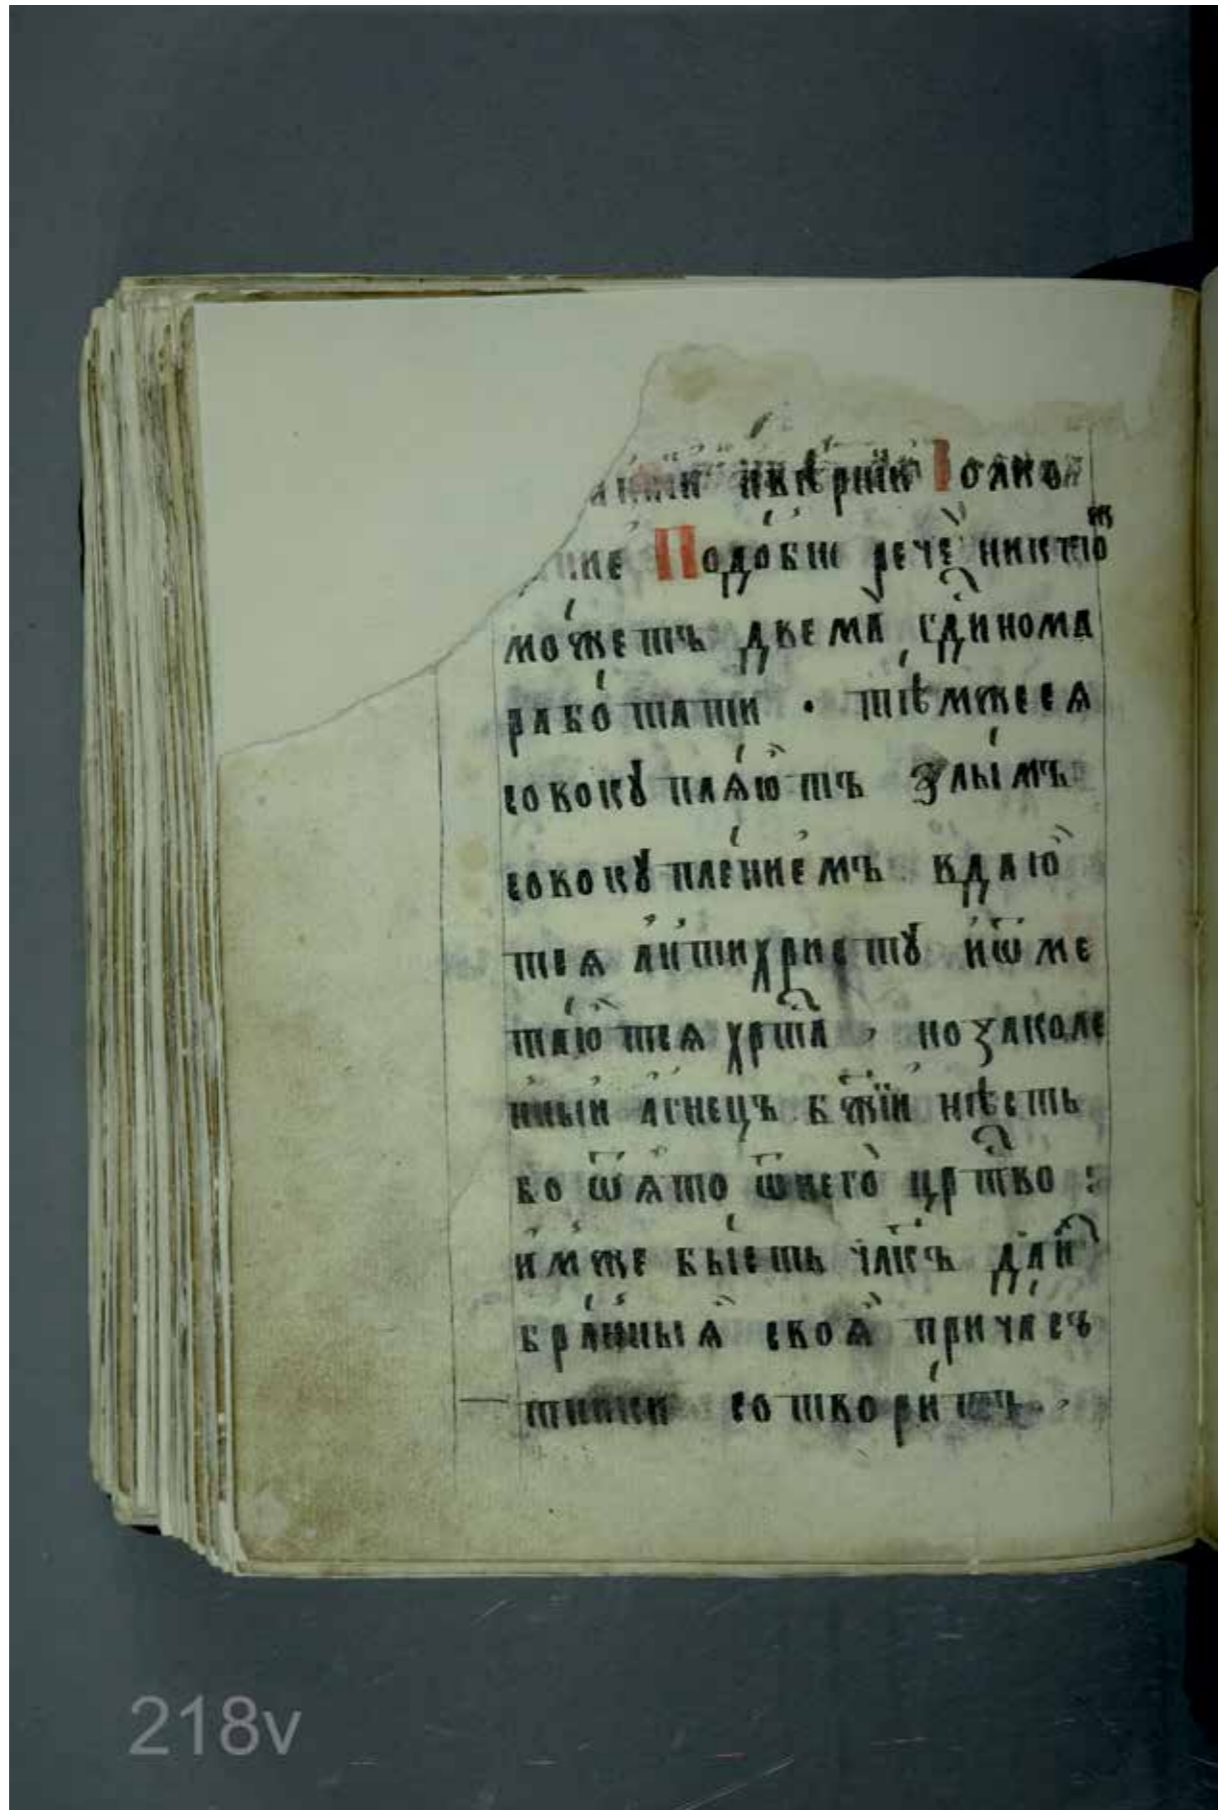 и вѣрнїи толко
ние Подобно рече никтоже
мо́жетъ двема̀ г҃дино́ма
рабо́тати · тѣ́мже ся
совокꙋпля́ютъ злы́мъ
совокꙋпле́ниемъ вдаю̀
тся а҆нтихристꙋ и҆ ѿме
та́ются хрⷭ҇та̀ , но закале
нныи а҆гнецъ бж҃їи нѣсть
бо ѿято ѿ него̀ црⷭ҇тво :
и҆мже бы́сть чл҃къ да и҆
бра́нныя своя̀ причас
тники сотвори́тъ ,
218v